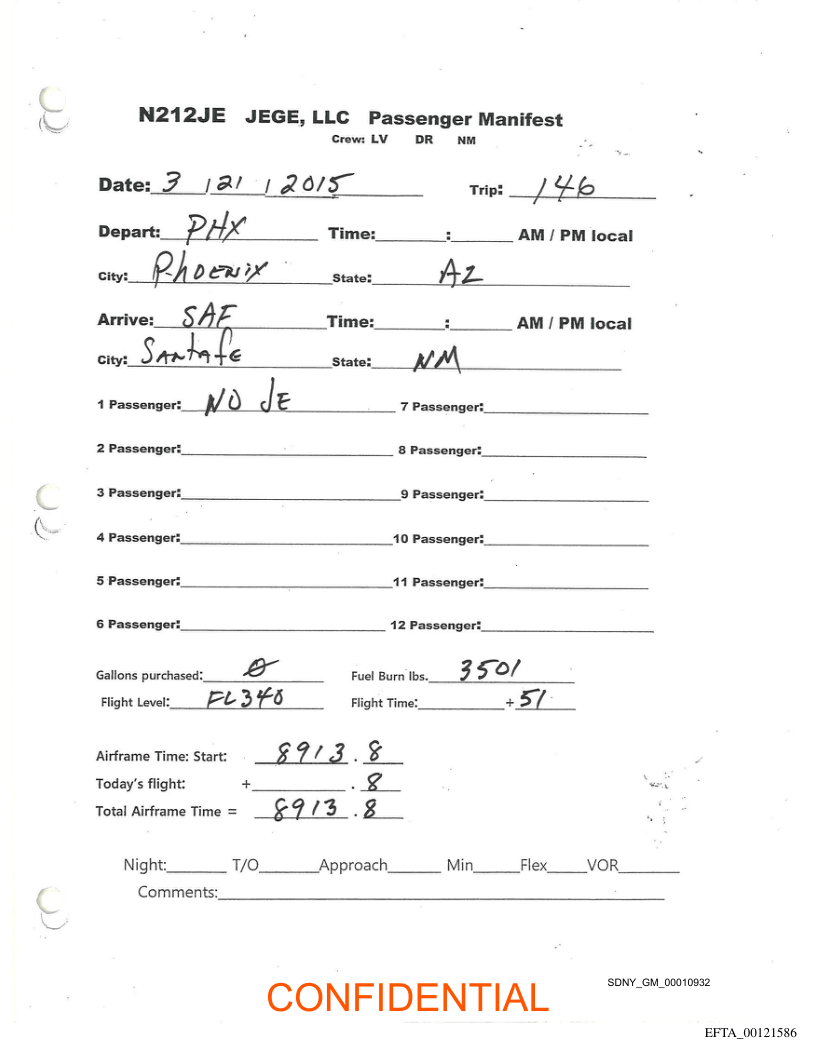 N212JE JEGE, LLC Passenger Manifest
Crew: LV DR NM
Date: 3 / 21 / 2015 Trip: 146
Depart: PHX Time: : AM / PM local
City: PhOENIX State: AZ
Arrive: SAF Time: : AM / PM local
City: SANtAfE State: NM
1 Passenger: NO JE 7 Passenger:
2 Passenger: 8 Passenger:
3 Passenger: 9 Passenger:
4 Passenger: 10 Passenger:
5 Passenger: 11 Passenger:
6 Passenger: 12 Passenger:
Gallons purchased: 0 Fuel Burn lbs. 3501
Flight Level: FL340 Flight Time: + 51
Airframe Time: Start: 8913 . 8
Today's flight: + . 8
Total Airframe Time = 8913 . 8
Night: T/O Approach Min Flex VOR
Comments:
SDNY_GM_00010932
CONFIDENTIAL
EFTA_00121586